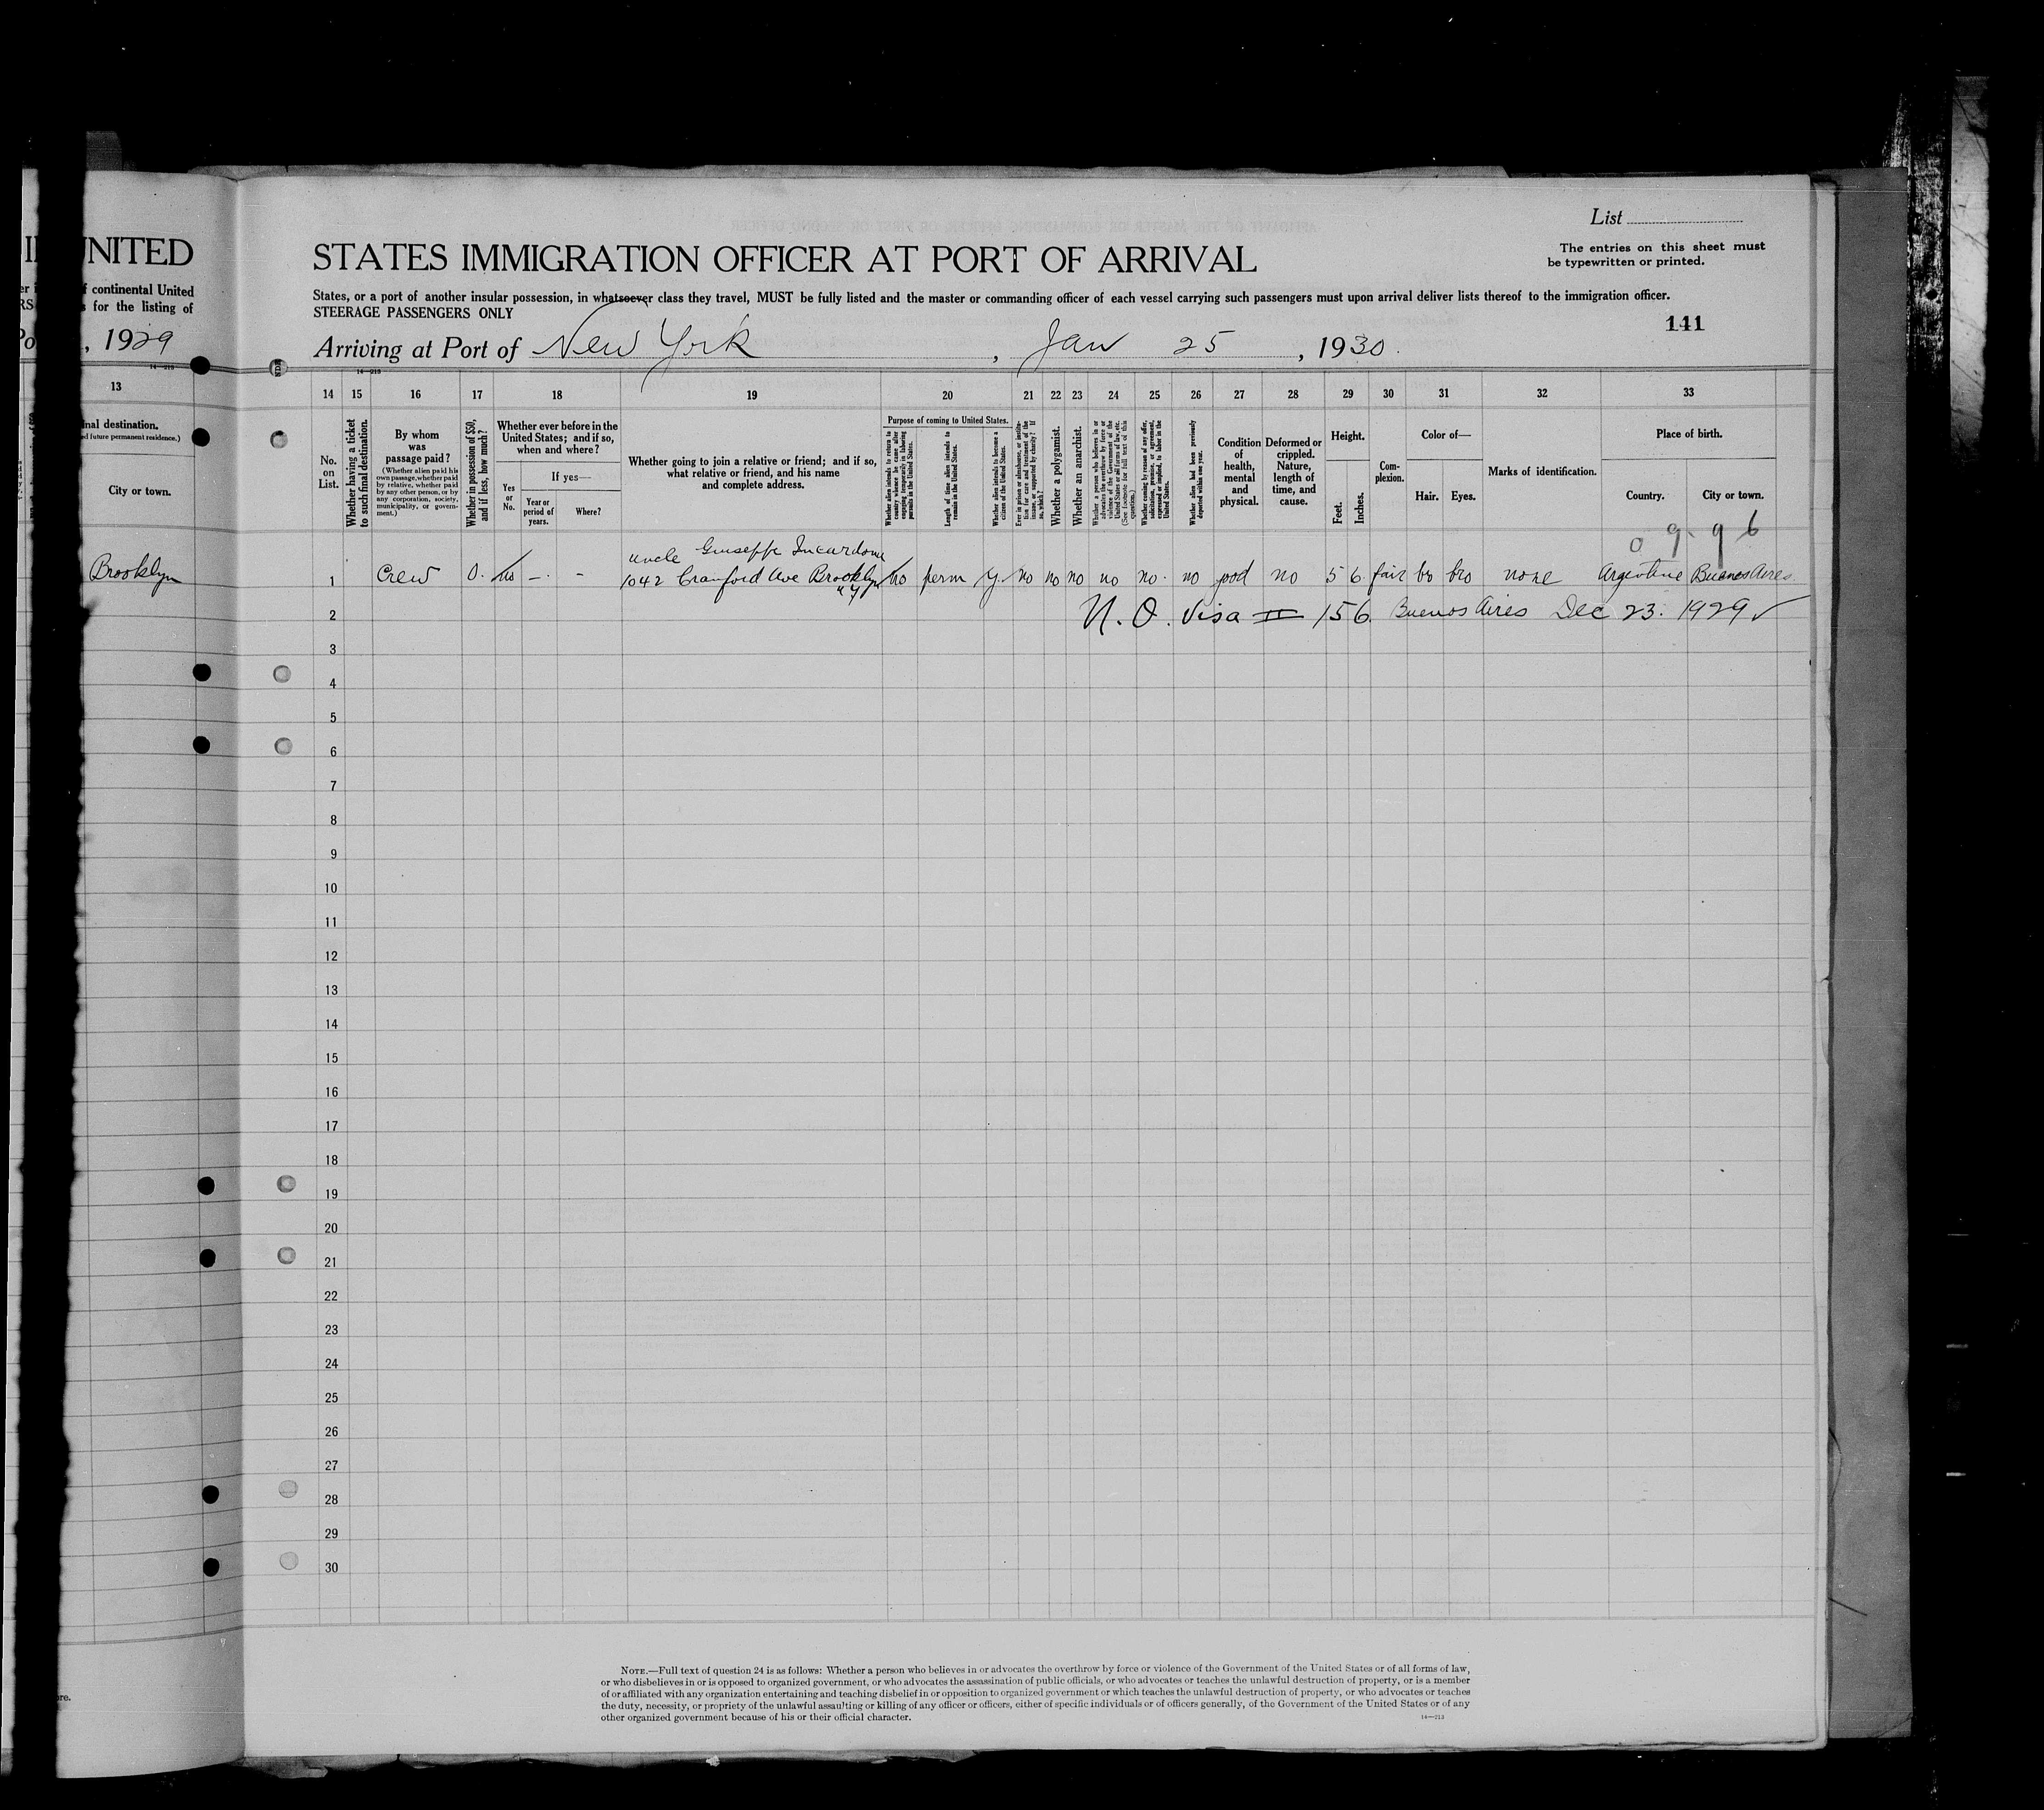 UNITED
f continental United
s for the listing of
, 1929
13
nal destination.
ed future permanent residence.)
City or town.
Brooklyn
List
The entries on this sheet must
be typewritten or printed.
STATES IMMIGRATION OFFICER AT PORT OF ARRIVAL
States, or a port of another insular possession, in whatsoever class they travel, MUST be fully listed and the master or commanding officer of each vessel carrying such passengers must upon arrival deliver lists thereof to the immigration officer.
STEERAGE PASSENGERS ONLY
141
Arriving at Port of New York, Jan 25, 1930.
14—213
14 15 16 17 18 19 20 21 22 23 24 25 26 27 28 29 30 31 32 33
No. on List.
Whether having a ticket to such final destination.
By whom was passage paid?
(Whether alien paid his own passage, whether paid by relative, whether paid by any other person, or by any corporation, society, municipality, or government.)
Whether in possession of $50, and if less, how much?
Whether ever before in the United States; and if so, when and where?
Yes or No.
If yes—
Year or period of years.
Where?
Whether going to join a relative or friend; and if so, what relative or friend, and his name and complete address.
Purpose of coming to United States.
Whether alien intends to return to country whence he came after engaging temporarily in laboring pursuits in the United States.
Length of time alien intends to remain in the United States.
Whether alien intends to become a citizen of the United States.
Ever in prison or almshouse, or institution for care and treatment of the insane, or supported by charity? If so, which?
Whether a polygamist.
Whether an anarchist.
Whether a person who believes in or advocates the overthrow by force or violence of the Government of the United States or all forms of law, etc. (See footnote for full text of this question.)
Whether coming by reason of any offer, solicitation, promise, or agreement, expressed or implied, to labor in the United States.
Whether alien had been previously deported within one year.
Condition of health, mental and physical.
Deformed or crippled. Nature, length of time, and cause.
Height.
Feet.
Inches.
Complexion.
Color of—
Hair.
Eyes.
Marks of identification.
Place of birth.
Country.
City or town.
0 9. 9 6
uncle Giuseppe Incardona
1 Crew 0. no — - 1042 Cranford Ave Brooklyn no perm y. no no no no no. no good no 5 6 fair bro bro none Argentine Buenos Aires
N Y
2 N. Q. Visa II 156 Buenos Aires Dec 23. 1929 ✓
3
4
5
6
7
8
9
10
11
12
13
14
15
16
17
18
19
20
21
22
23
24
25
26
27
28
29
30
NOTE.—Full text of question 24 is as follows: Whether a person who believes in or advocates the overthrow by force or violence of the Government of the United States or of all forms of law,
or who disbelieves in or is opposed to organized government, or who advocates the assassination of public officials, or who advocates or teaches the unlawful destruction of property, or is a member
of or affiliated with any organization entertaining and teaching disbelief in or opposition to organized government or which teaches the unlawful destruction of property, or who advocates or teaches
the duty, necessity, or propriety of the unlawful assaulting or killing of any officer or officers, either of specific individuals or of officers generally, of the Government of the United States or of any
other organized government because of his or their official character.
14—213